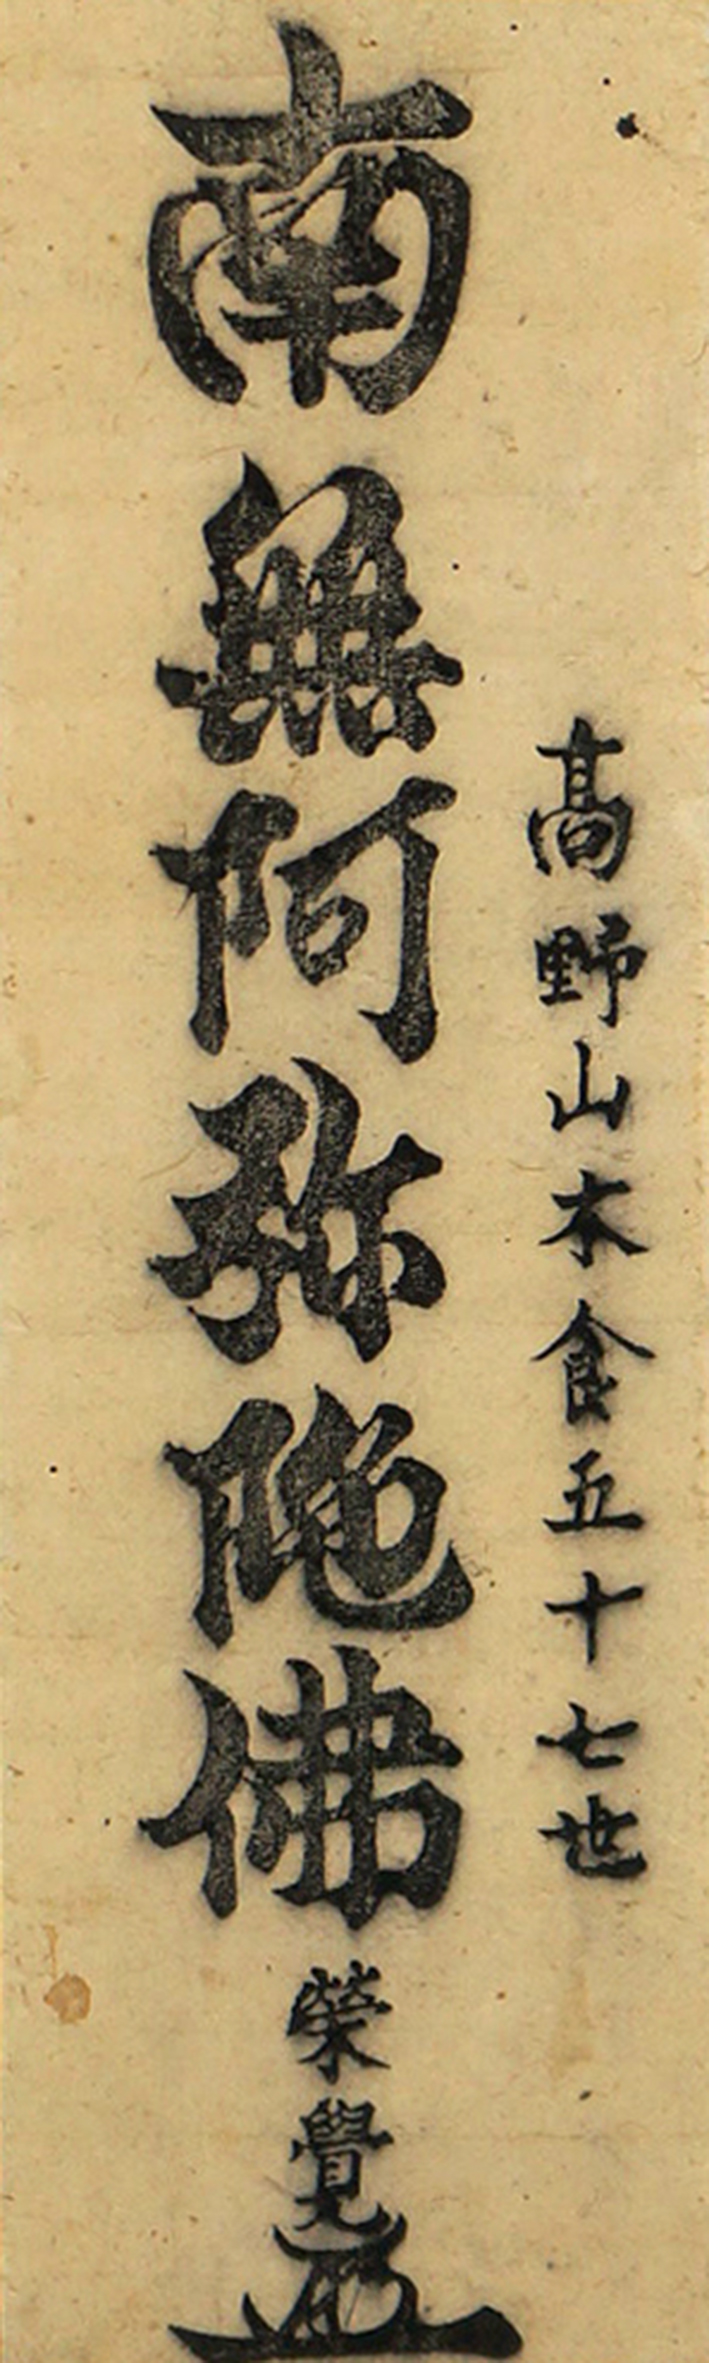 高野山木食五十七世
南無阿弥陀佛
榮覺